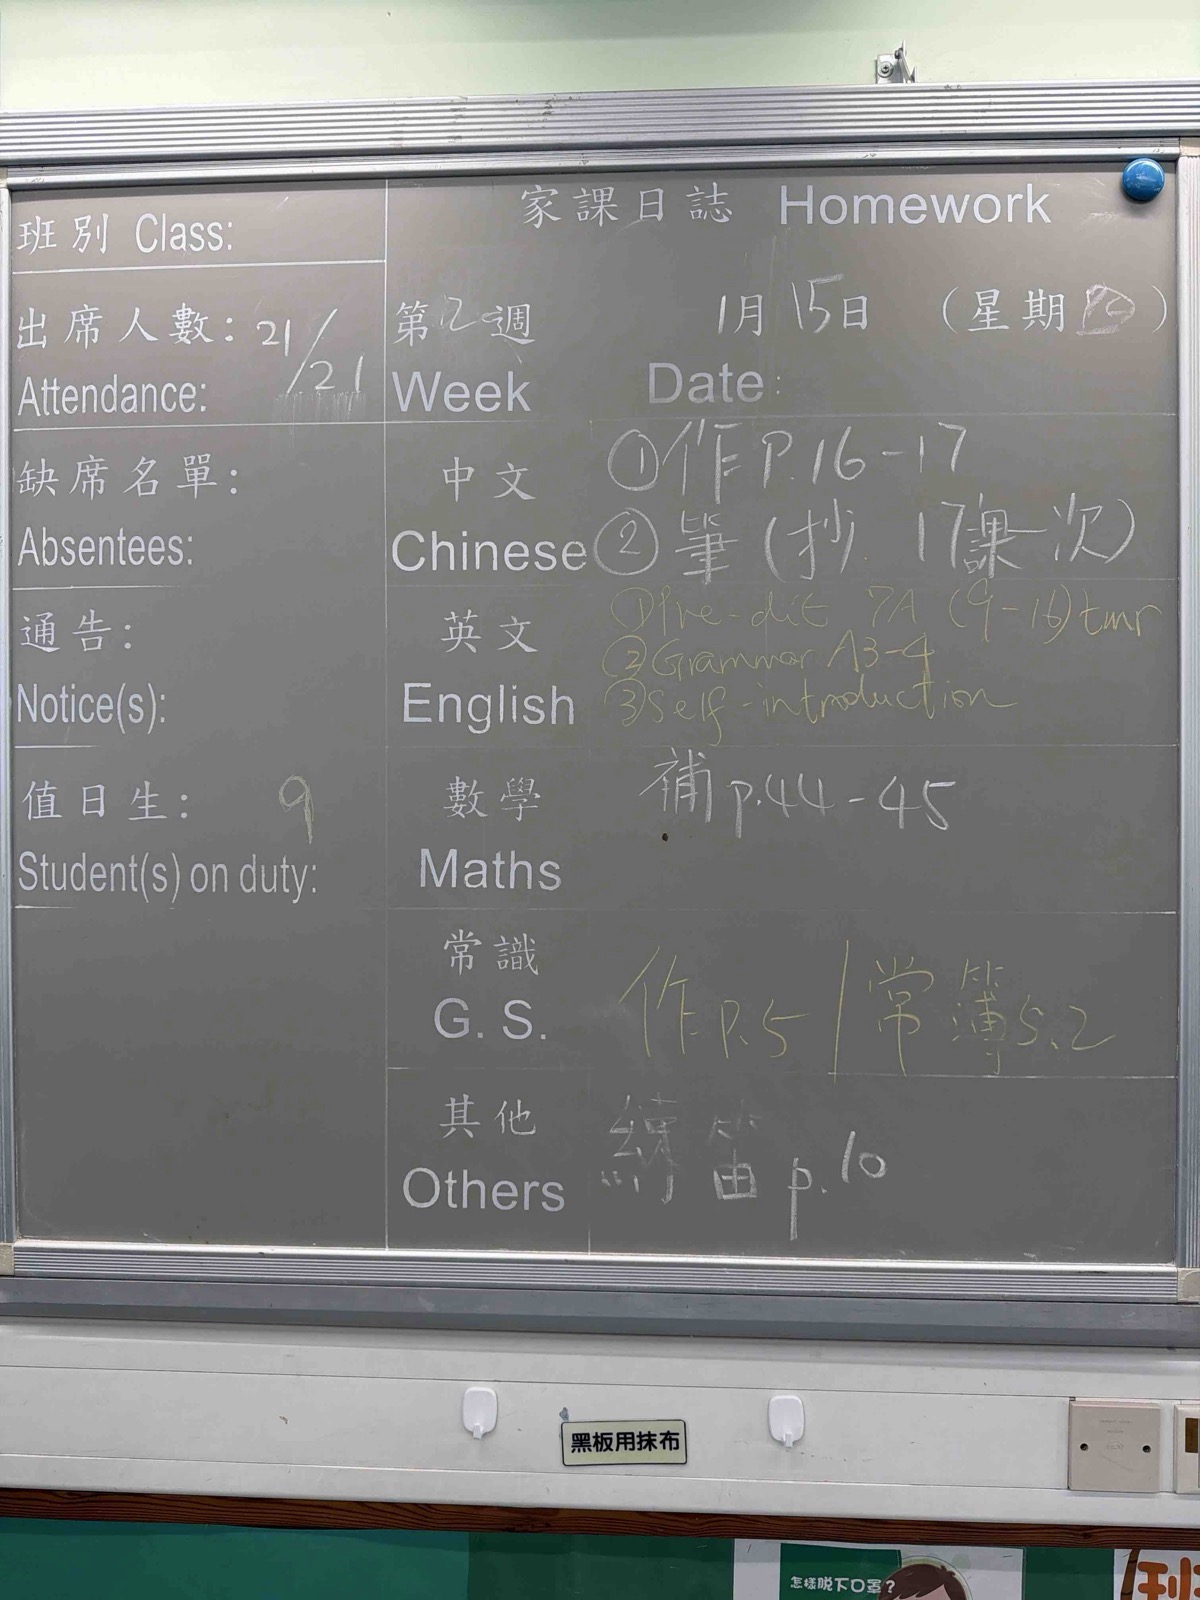 班別 Class:
家課日誌 Homework
出席人數: 21/21
Attendance:
第 週 1月15日 (星期 )
Week Date:
缺席名單:
Absentees:
中文
Chinese
①作P.16-17
②筆(抄 17課一次)
通告:
Notice(s):
英文
English
①Pre-dict 7A (9-16) tmr
②Grammar A3-4
③Self-introduction
值日生: 9
Student(s) on duty:
數學
Maths
補 p.44-45
常識
G. S.
作P.5 / 常簿5.2
其他
Others
練笛 p.10
黑板用抹布
怎樣脫下口罩?